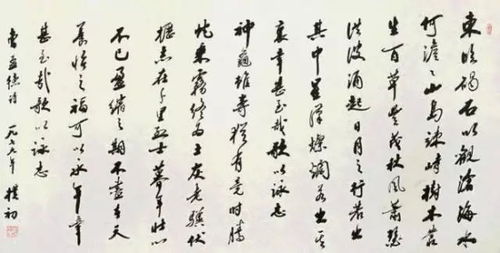 東臨碣石以觀滄海水
何澹々山島竦峙樹木叢
生百草豐茂秋風蕭瑟
洪波涌起日月之行若出
其中星漢燦爛若出其
裏幸甚至哉歌以詠志
神龜雖壽猶有竟時騰
蛇乘霧終為土灰老驥伏
櫪志在千里烈士暮年壯心
不已盈縮之期不盡在天
養怡之福可以永年幸
甚至哉歌以詠志
曹孟德詩 一九七七年 樸初